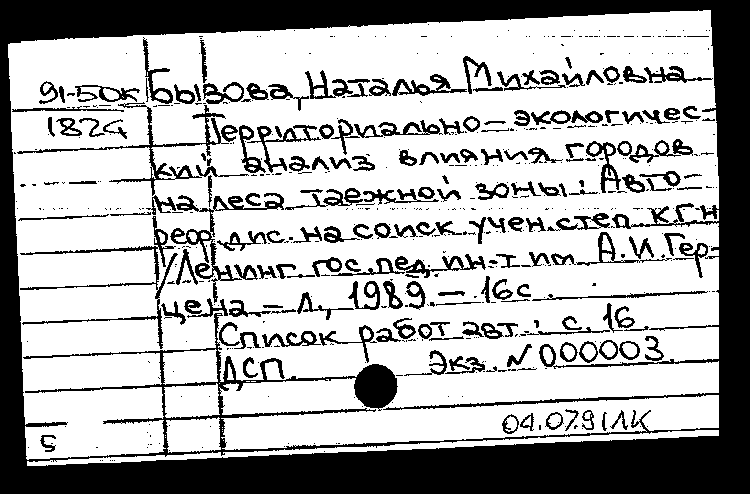 91-5DK Бызова, Наталья Михайловна
182G Территориально-экологичес-
кий анализ влияния городов
на леса таежной зоны: Авто-
реф. дис. на соиск учен. степ К.Г.Н
/Ленинг. гос. пед. ин-т им А.И.Гер-
цена. — Л., 1989. — 16с.
Список работ авт.: с. 16.
ДСП. Экз. N 000003.
04.07.91 ЛК
5